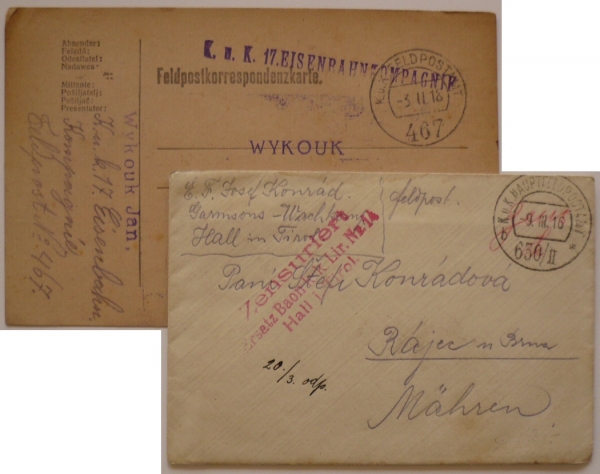 K. u. K. 17. EISENBAHNKOMPAGNIE
Feldpostkorrespondenzkarte.
Absender:
Feladó:
Odesílatel:
Nadawca:
K.u.K. FELDPOSTAMT
-3. II. 18
467
WYKOUK
Wykouk Jan.
K.u.k. 17. Eisenbahn.
Kompagnie
Feldpost No 467.
E. F. Josef Konrád.
Garnisons-
Hall in Tirol
Feldpost.
K.u.K. HAUPTFELDPOSTAMT
-9. III. 18
630/II
Zensuriert
Ersatz Baon Nr. 14
Hall i. Tirol.
Paní Štefi Konrádová
Rájec u Brna
Mähren
20./3. odp.